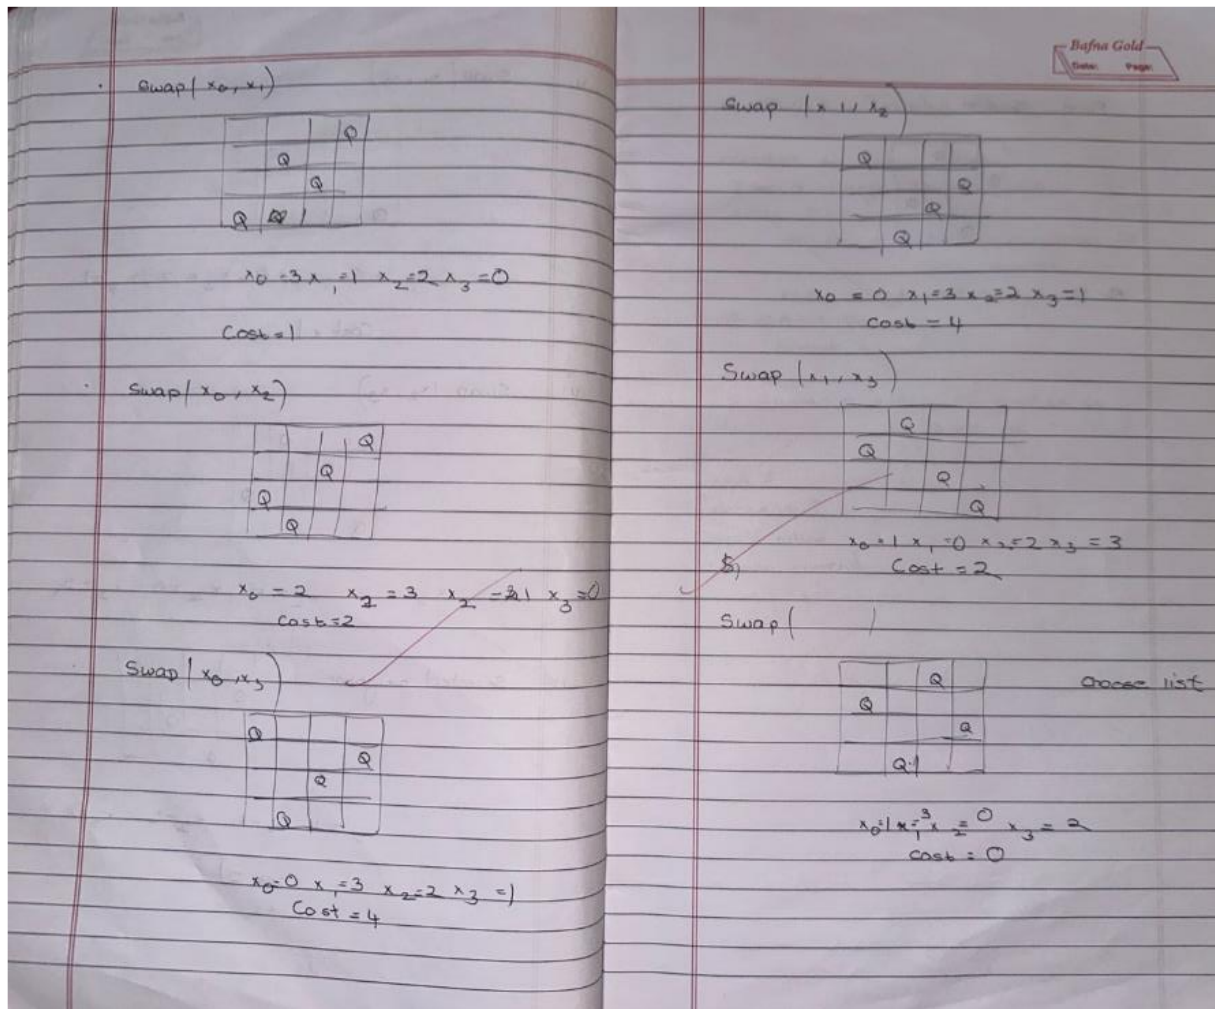 Swap(x0, x1)
Q
Q
Q
Q
x0=3 x1=1 x2=2 x3=0
Cost=1
Swap(x0, x2)
Q
Q
Q
Q
x0 = 2 x2 = 3 x2 = 1 x3=0
Cost=2
Swap(x0, x3)
Q
Q
Q
Q
x0=0 x1=3 x2=2 x3=1
Cost=4
Bafna Gold
Date: Page:
Swap (x1, x2)
Q
Q
Q
Q
x0 = 0 x1=3 x2=2 x3=1
Cost = 4
Swap (x1, x3)
Q
Q
Q
Q
x0=1 x1=0 x2=2 x3=3
Cost=2
Swap( )
Q
Choose list
Q
Q
Q
x0=1 x1=3 x2=0 x3=2
Cost=0